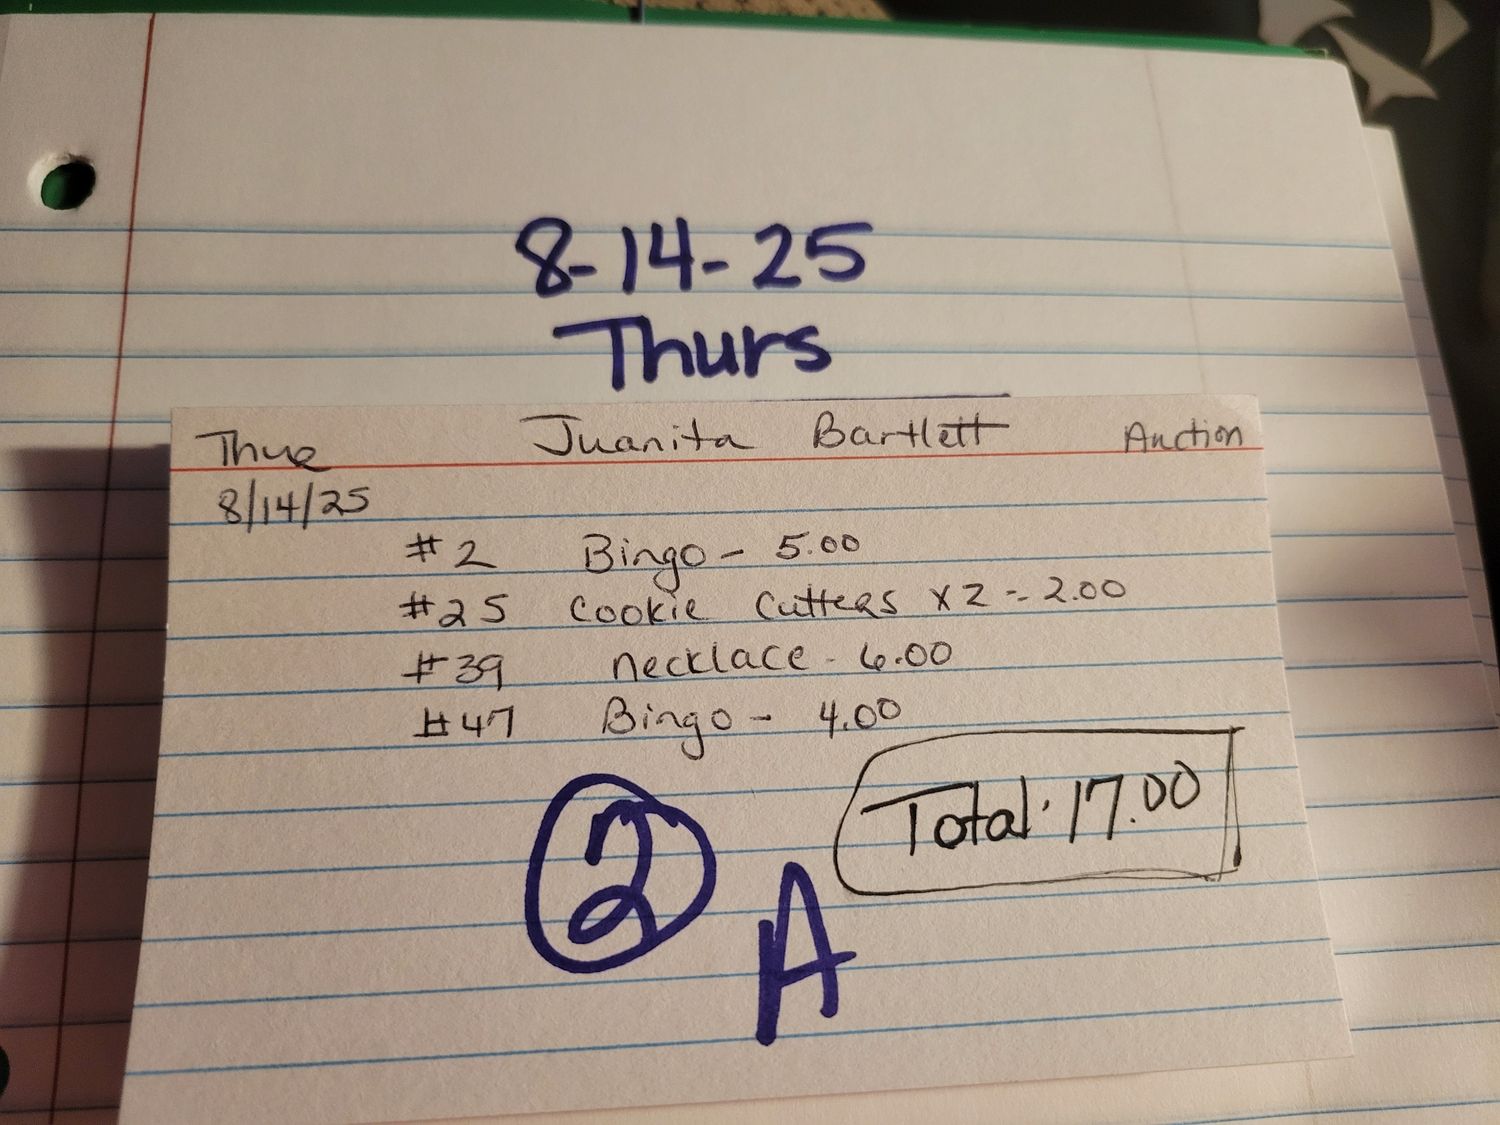 8-14-25
Thurs
Thur Juanita Bartlett Auction
8/14/25
#2 Bingo - 5.00
#25 Cookie Cutters x2 - 2.00
#39 necklace - 6.00
#47 Bingo - 4.00
Total: 17.00
2
A